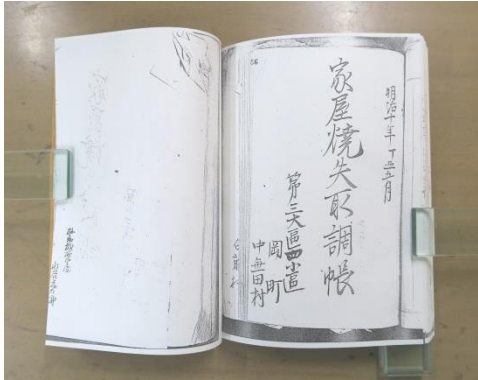 明治十年丁丑五月
家屋焼失取調帳
第三大區四小區
岡町
中無田村